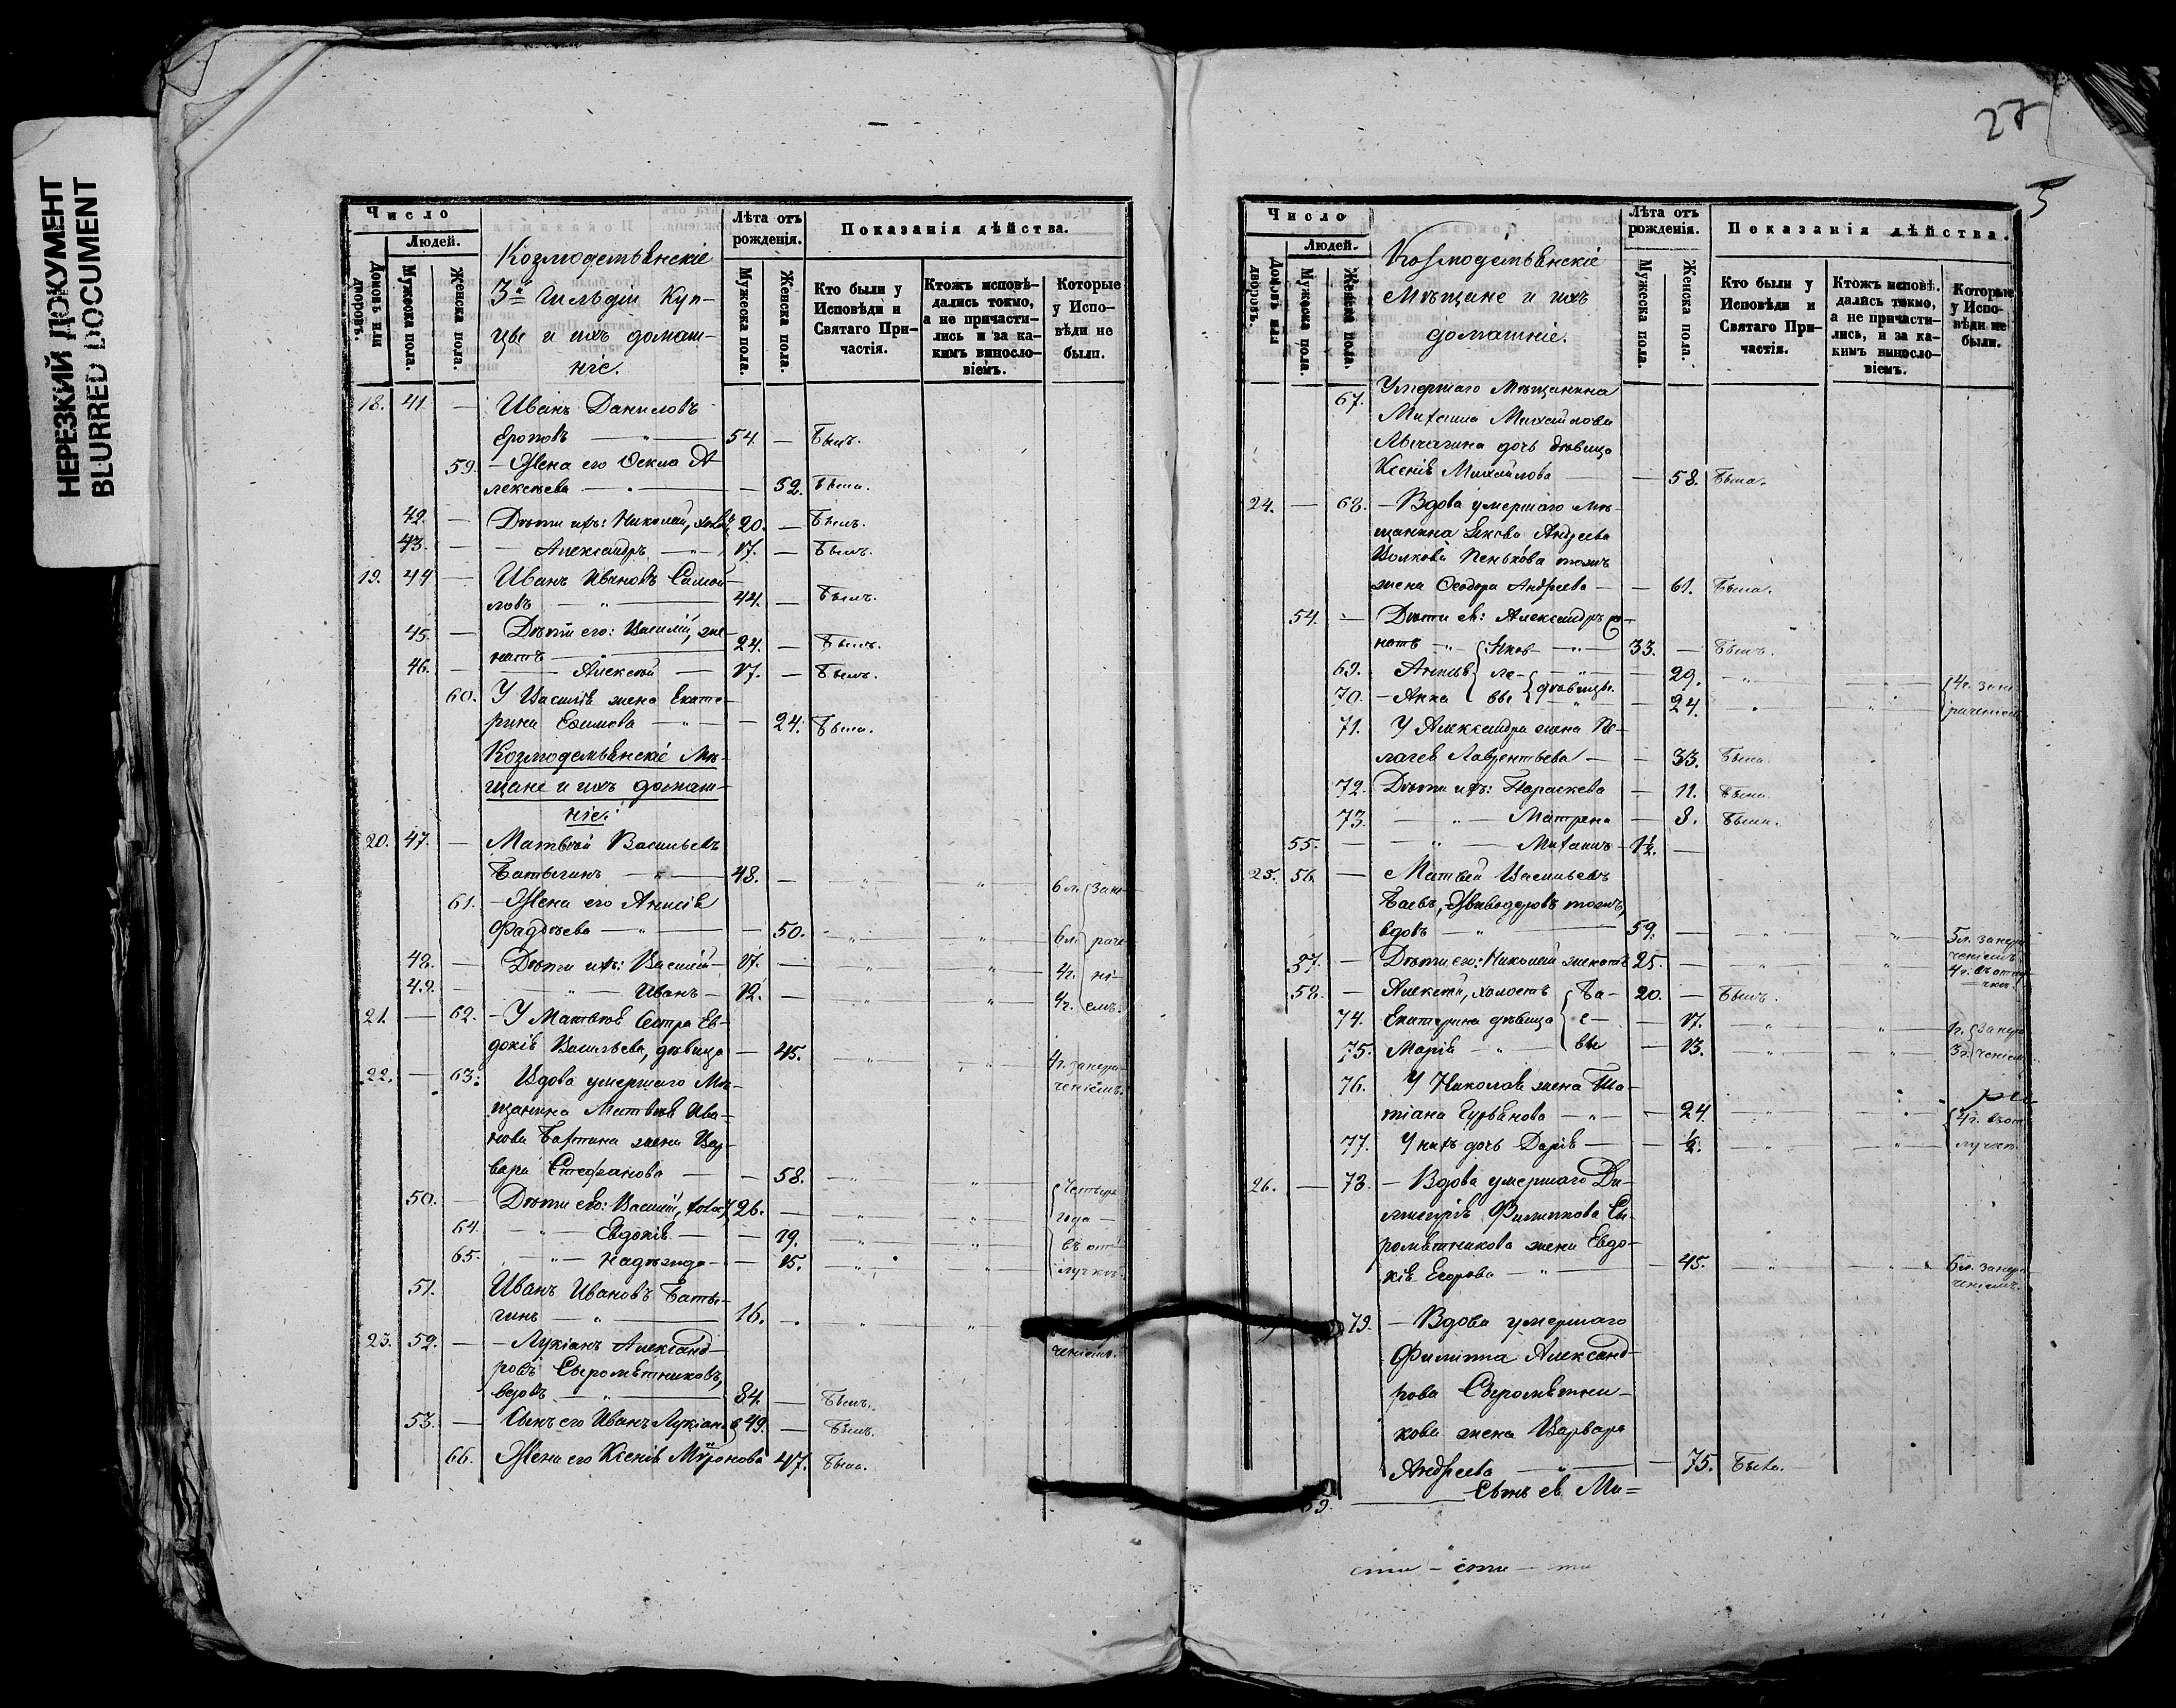 НЕРЕЗКИЙ ДОКУМЕНТ
BLURRED DOCUMENT
Число
Людей.
Домовъ или дворовъ.
Мужеска пола.
Женска пола.
Козмодемьянскіе
3й Гильдіи Куп-
цы и ихъ домаш-
ніе.
Лѣта отъ рожденія.
Мужеска пола.
Женска пола.
Показанія дѣйства.
Кто были у Исповѣди и Святаго При-частія.
Ктожъ исповѣ-дались токмо, а не причасти-лись и за ка-кимъ виносло-віемъ.
Которые у Испо-вѣди не были.
18. 41 — Иванъ Даниловъ
54. — Былъ.
59. — Жена его Фекла А-
лексѣева — „ — — 52. Была.
42. — Дѣти ихъ: Николай, 20. — Былъ.
43. — — Александръ — „ — 17. — Былъ.
19. 44 — Иванъ Ивановъ Самой-
ловъ — „ — 44. — Былъ.
45. — Дѣти его: Василій, же-
натъ — „ — 24. — Былъ.
46. — — Алексѣй — 17. — Былъ.
60. У Василія жена Екате-
рина Ефимова — „ — — 24. Была.
Козмодемьянскіе Мѣ-
щане и ихъ домаш-
ніе:
20. 47. — Матвѣй Васильевъ
Батыгинъ — „ — 48. — „ — „ — 6 л. зане-
61. — Жена его Анисія
Фадѣева — „ — — 50. — „ — „ — 6 л. раче-
48. — Дѣти ихъ: Василій — 17. — „ — „ — 4 г. ні-
49. — — „ — Иванъ — 12. — „ — „ — 4 г. емъ.
21. — 62. — У Матвѣя Сестра Ев-
докія Васильева, дѣвица — 45. — „ — „ — 4 г. занера-
ченіемъ.
22. — 63. Вдова умершаго Мѣ-
щанина Матвѣя Ива-
нова жена Вар-
вара Стефанова — — 58. — „ — „ —
50. — Дѣти его: Василій, 26. — „ — „ — Четыре
64. — „ — Евдокія — — 19. — „ — „ — года —
65. — „ — Надежда — — 15. — „ — „ — въ от-
лучкѣ.
51. Иванъ Ивановъ Баты-
гинъ — „ — 16. — „ — „ —
ченіемъ.
23. 52. — — Лукіанъ Александ-
ровъ Сыромятниковъ,
вдовъ — „ — 84. — Былъ.
53. — Сынъ его Иванъ Лукіановъ 49. — Былъ.
66. Жена его Ксенія Миронова 47. Была.
27
5
Число
Людей.
Домовъ или дворовъ.
Мужеска пола.
Женска пола.
Козмодемьянскіе
Мѣщане и ихъ
домашніе.
Лѣта отъ рожденія.
Мужеска пола.
Женска пола.
Показанія дѣйства.
Кто были у Исповѣди и Святаго При-частія.
Ктожъ исповѣ-дались токмо, а не причасти-лись, и за ка-кимъ виносло-віемъ.
Которые у Испо-вѣди не были.
67. Умершаго Мѣщанина
Михаила Михайлова
дочь дѣвица
Ксенія Михайлова — — 58. Была.
24. — 68. — Вдова умершаго Мѣ-
щанина Якова Андреева
Волкова Пенькова тожъ
жена Феодора Андреева — — 61. Была.
54. — Дѣти ея: Александръ же-
натъ — „ — Яков — „ — 33. — Былъ.
69. Анисья ле- — „ — 29. — „ — „ — 4 г. зане-
70. — Анна вы дѣвицы. — 24. — „ — „ — раченіем
71. У Александра жена Пе-
лагея Лаврентьева — — 33. Была.
72. Дѣти ихъ: Параскева — 11. Была.
73. — „ — Матрена — 8. Была.
55. — — „ — Михаилъ — 1½. —
25. 56. — Матвѣй Васильевъ
тожъ,
вдовъ — „ — 59. — „ — „ — 5 л. занера
ченіемъ.
57. — Дѣти его: Николай женатъ 25. — „ — „ — 4 г. въ отлу-
чкѣ.
58. — Алексѣй, холостъ Ба- 20. — Былъ.
74. Екатерина дѣвица е- — 17. — „ — „ — занера
75. Марія — „ — вы — 13. — „ — „ — 3 г. ченіем.
76. У Николая жена Та-
тіана Гурьянова — „ — — 24. — „ — „ — 4 г. въ от
77. У нихъ дочь Дарія — — ½. — „ — „ — лучкѣ.
26. — 78. — Вдова умершаго Ди-
митрія Филиппова Сы-
ромятникова жена Евдо-
кія Егорова — „ — — 45. — „ — „ — 6 л. занера
ченіемъ.
79. — Вдова умершаго
Филиппа Александ-
рова Сыромятни-
кова жена Варвара
Андреева — — 75. Была.
59. — Сынъ ея Ми=
сти – сти – ти